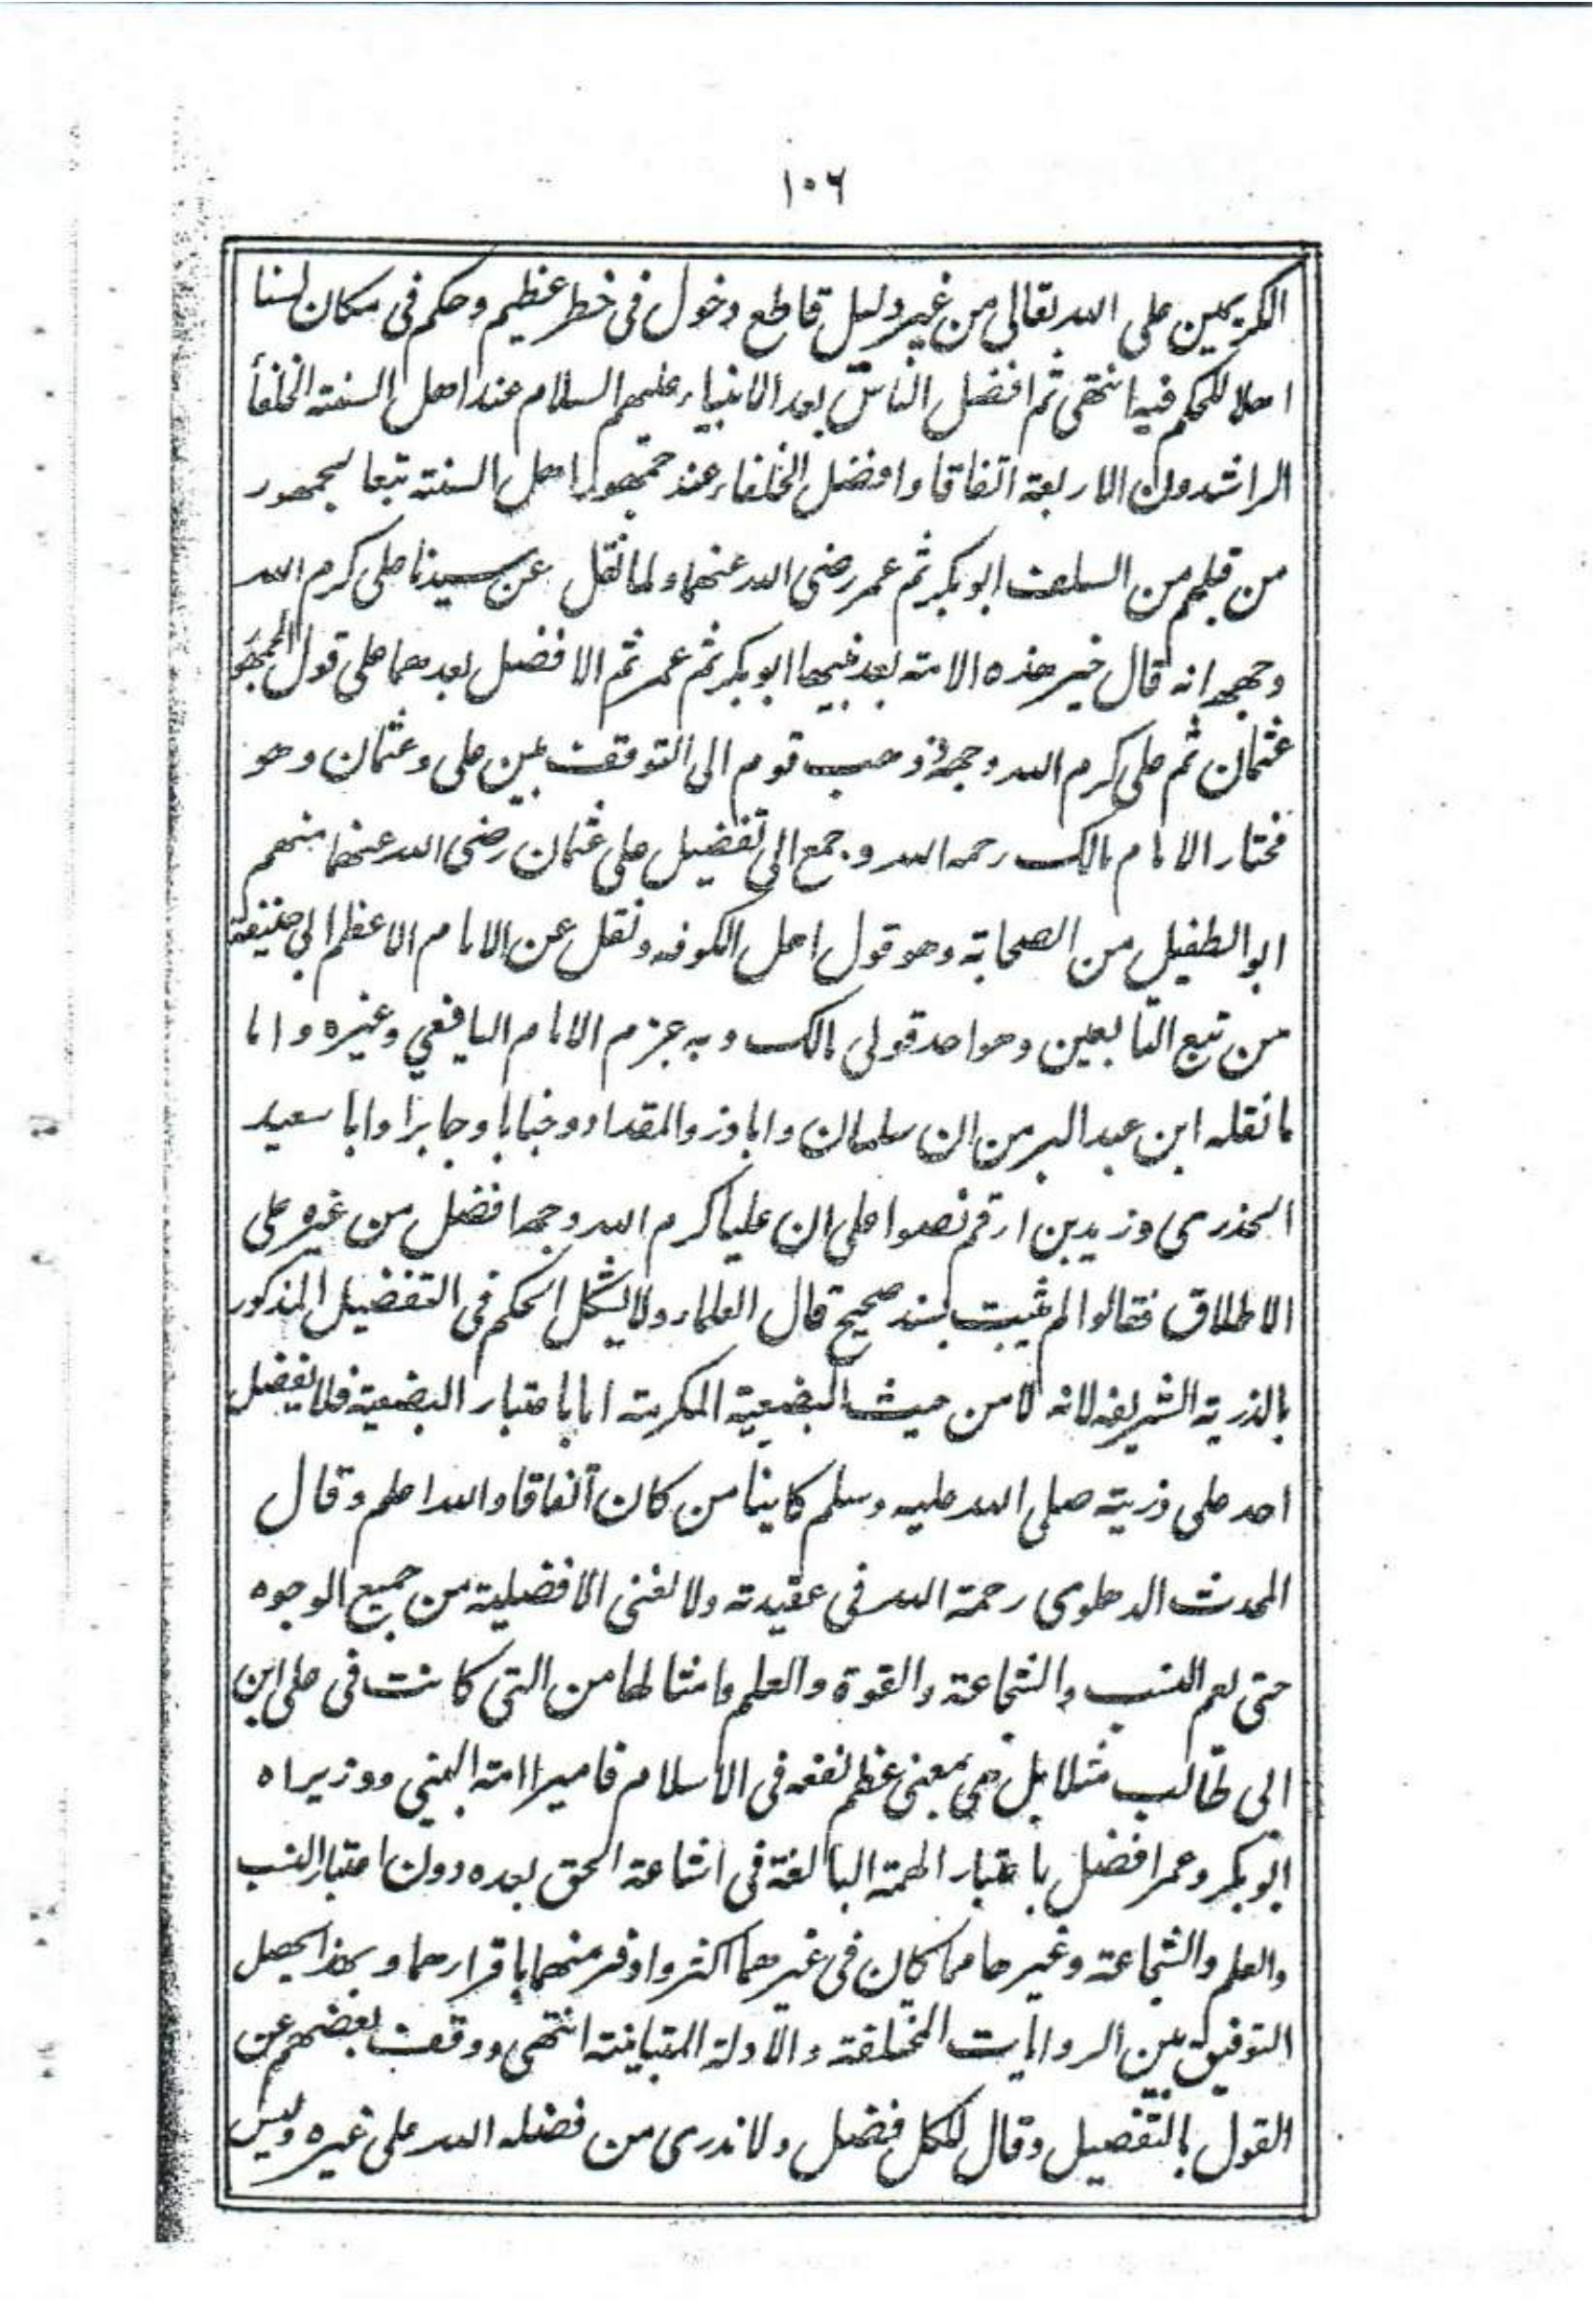 ١٠٦
الكريمين على الله تعالى من غير دليل قاطع دخول فى خطر عظيم وحكم فى مكان لسنا
اهلا للحكم فيه انتهى ثم افضل الناس بعد الانبياء عليهم السلام عند اهل السنته الخلفأ
الراشدون الاربعة اتفاقا وافضل الخلفاء عند جمهور اهل السنته تبعا لجمهور
من قبلهم من السلف ابو بكر ثم عمر رضى الله عنهما ولما نقل عن سيدنا على كرم الله
وجهه انه قال خير هذه الامته بعد نبيها ابو بكر ثم عمر ثم الافضل بعدهما على قول الجمهو
عثمان ثم على كرم الله وجهه وذهب قوم الى التوقف بين على وعثمان وهو
مختار الامام مالك رحمه الله و جمع الى تفضيل على عثمان رضى الله عنهما منهم
ابو الطفيل من الصحابة وهو قول اهل الكوفه ونقل عن الامام الاعظم ابي حنيفة
من تبع التابعين وهو احد قولى مالك وبه جزم الامام اليافعي وغيره واما
ما نقله ابن عبد البر من ان سلمان واباذر والمقداد وخبابا وجابرا وابا سعيد
الخدرى وزيد بن ارقم نصوا على ان عليا كرم الله وجهه افضل من غيره على
الاطلاق فقالوا لم يثبت بسند صحيح قال العلماء ولا يشكل الحكم فى التفضيل المذكور
بالذريته الشريفه لانه لا من حيث البضعية المكرمته اما باعتبار البضعية فلا يفضل
احد على ذريته صلى الله عليه وسلم كاينا من كان اتفاقا والله اعلم وقال
المحدث الدهلوى رحمة الله فى عقيدته ولا نعنى الافضيلية من جميع الوجوه
حتى يعم النسب والشجاعته والقوة والعلم وامثالها من التى كانت فى على ابن
ابى طالب مثلا بل هى بمعنى عظم نفعه فى الاسلام فاميرا امته النبي ووزيراه
ابو بكر وعمر افضل باعتبار الهمته البالغة فى اشاعة الحق بعده دون اعتبار النسب
والعلم والشجاعته وغيرها مما كان فى غيرهما اكثر واوفر منهما باقرارهما وبهذا يحصل
التوفيق بين الروايات المختلفة والادلة المتباينته انتهى ووقف بعضهم عن
القول بالتفصيل وقال للكل فضل ولا ندرى من فضله الله على غيره وليس